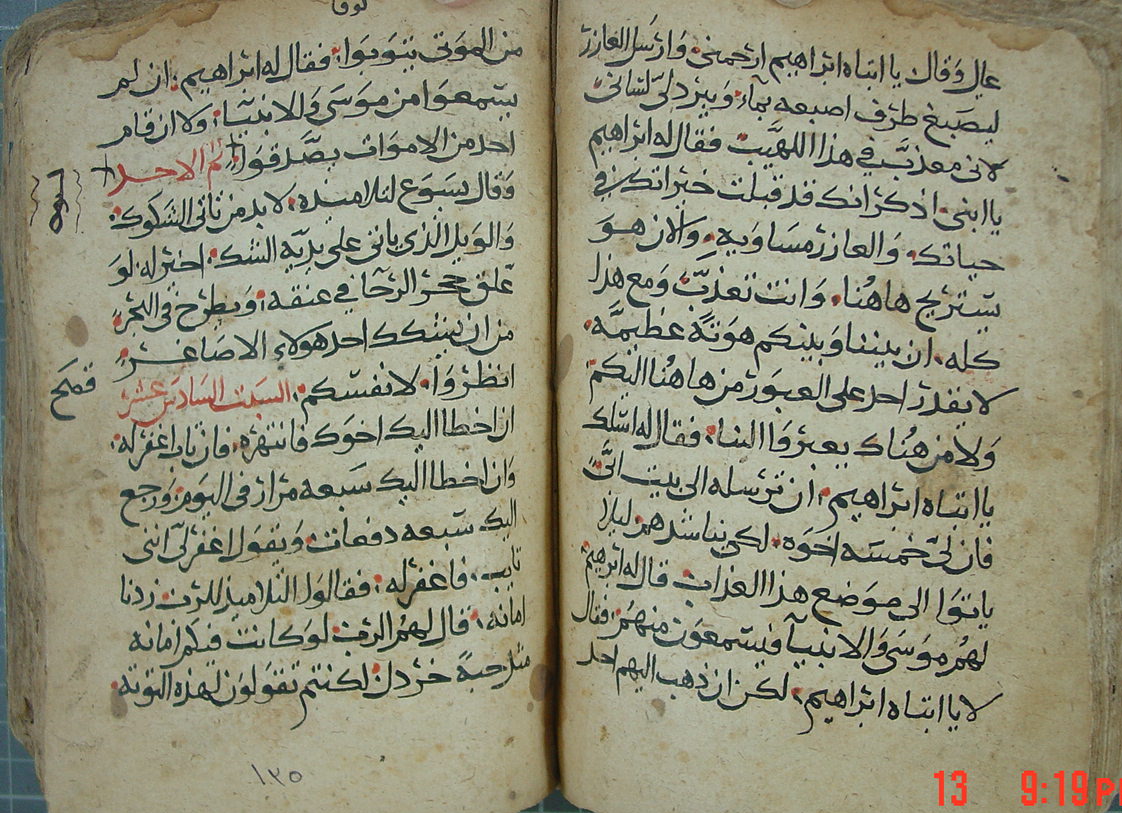 عال وقال يا ابتاه ابراهيم ارحمني وارسل العازر
ليصبغ طرف اصبعه بماء ويبرد لي لساني
لاني معذب في هذا اللهيب فقال له ابراهيم
يا ابني اذكر انك قد قبلت خيراتك في
حياتك والعازر مساويه والان هو
يستريح هاهنا وانت تعذب ومع هذا
كله ان بيننا وبينكم هوته عظيمه
لا يقدر احد على العبور من هاهنا اليكم
ولا من هناك يعبروا الينا فقال له اسلك
يا ابتاه ابراهيم ان ترسله الى بيت ابي
فان لي خمسه اخوه لكي يناشدهم ليلا
ياتوا الى موضع هذا العذاب قال له ابرهيم
لهم موسى والانبيآ فيستمعون منهم فقال
لا يا ابتاه ابراهيم لكن ان ذهب اليهم احد
لوقا
من الموتى يتوبوا فقال له ابراهيم ان لم
يستمعوا من موسى والانبيآ ولا ان قام
احد من الاموات يصدقوا تم الاحد
وقال يسوع لتلاميذه لا بد من تاتي الشكوك
والويل الذي ياتي على يديه الشك اخير له لو
علق حجر الرحا في عنقه ويطرح في البحر
من ان يشكك احد هولاء الاصاغر
فصح
انظروا لانفسكم السبت السادس عشر
ان اخطا اليك اخوك فانتهره فان تاب اغفر له
وان اخطا اليك سبعه مرار في اليوم ورجع
اليك سبعه دفعات ويقول اغفر لي انني
تايب فاغفر له فقالوا التلاميذ للرب زدنا
امانه قال لهم الرب لو كانت فيكم امانه
مثل حبة خردل لكنتم تقولون لهذه التوته
١٣٥
13 9:19